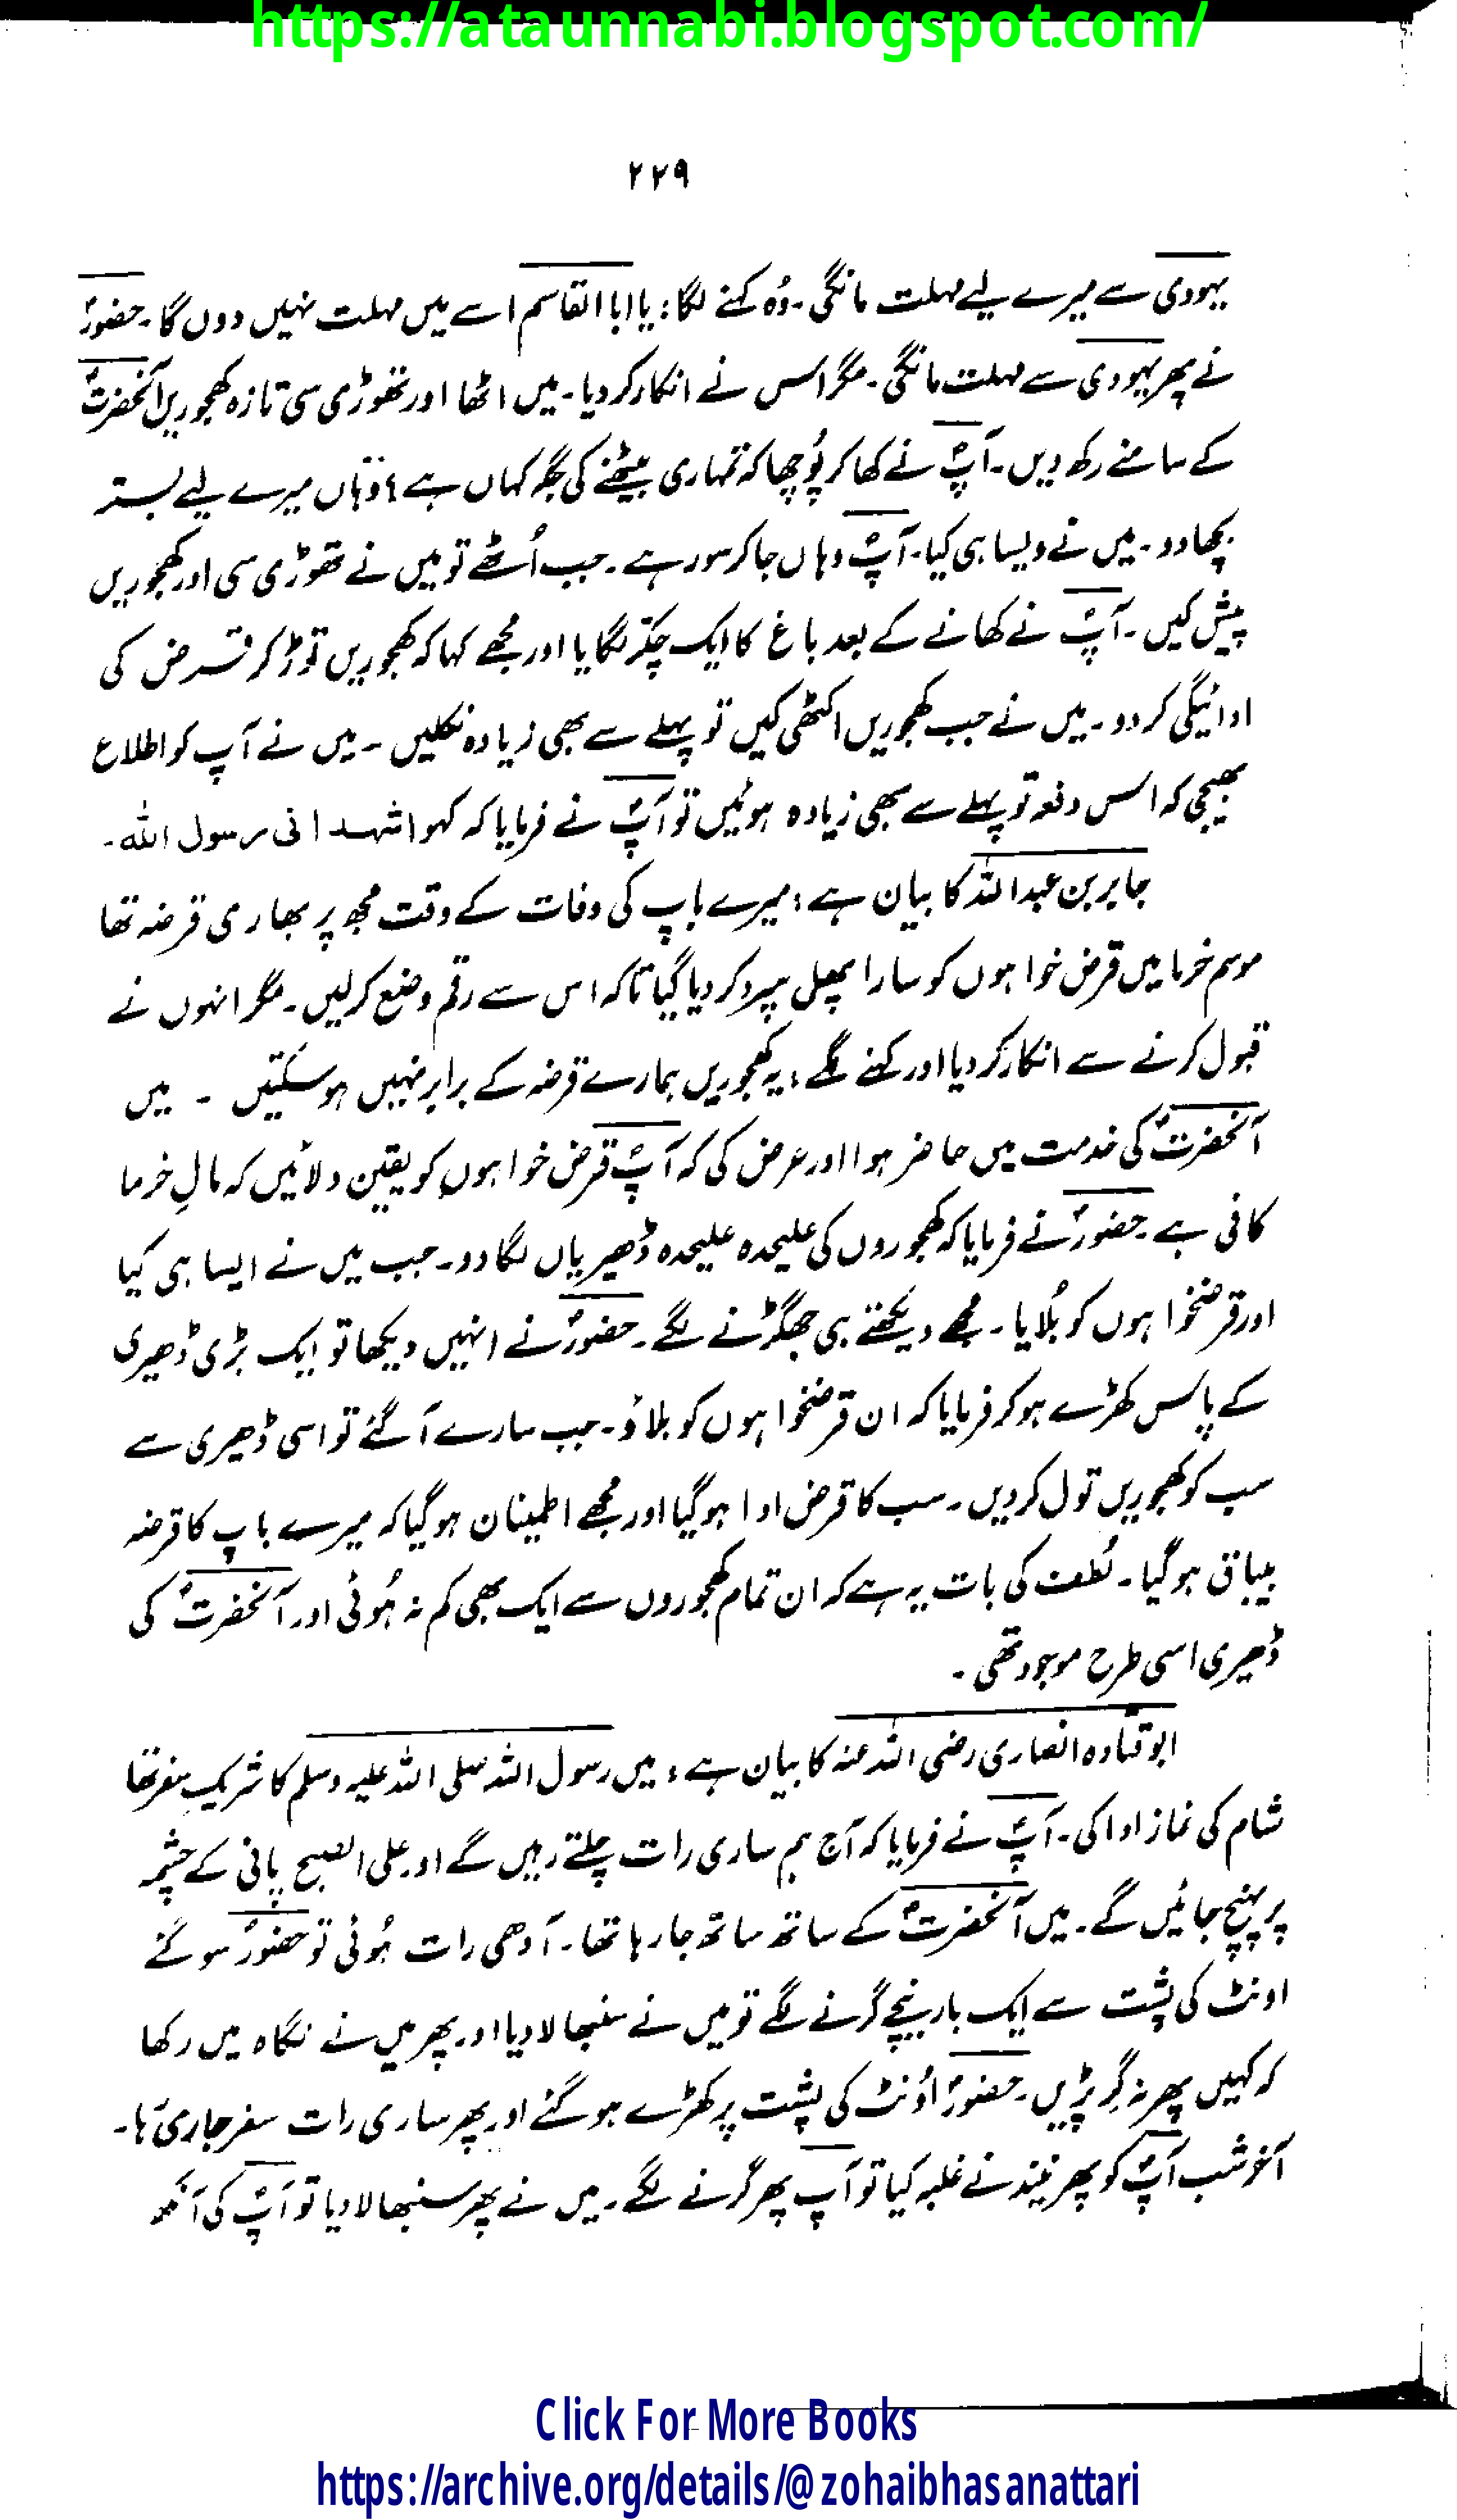 https://ataunnabi.blogspot.com/
۲۲۹
یہودی سے میرے لیے مہلت مانگی۔ وُہ کہنے لگا: یا ابا القاسم اسے میں مہلت نہیں دوں گا۔ حضورؐ
نے پھر یہودی سے مہلت مانگی۔ مگر اس نے انکار کر دیا۔ میں اٹھا اور تھوڑی سی تازہ کھجوریں آنحضرتؐ
کے سامنے رکھ دیں۔ آپؐ نے کھا کر پُوچھا کہ تمہاری بیٹھنے کی جگہ کہاں ہے؟ وہاں میرے لیے بستر
بچھا دو۔ میں نے ویسا ہی کیا۔ آپؐ وہاں جا کر سو رہے۔ جب اُٹھے تو میں نے تھوڑی سی اور کھجوریں
پیش کیں۔ آپؐ نے کھانے کے بعد باغ کا ایک چکّر لگایا اور مجھے کہا کہ کھجوریں توڑ کر قرض کی
ادائیگی کر دو۔ میں نے جب کھجوریں اکٹھی کیں تو پہلے سے بھی زیادہ نکلیں۔ میں نے آپ کو اطلاع
بھیجی کہ اس دفعہ تو پہلے سے بھی زیادہ ہوئیں تو آپؐ نے فرمایا کہ کہو اشہد انی رسول اللہ۔
جابر بن عبداللہ کا بیان ہے: میرے باپ کی وفات کے وقت مجھ پر بھاری قرضہ تھا
موسم خرما میں قرض خواہوں کو سارا پھل سپرد کر دیا گیا تاکہ اس سے رقم وضع کر لیں۔ مگر انہوں نے
قبول کرنے سے انکار کر دیا اور کہنے لگے: یہ کھجوریں ہمارے قرضہ کے برابر نہیں ہو سکتیں ۔ میں
آنحضرتؐ کی خدمت میں حاضر ہوا اور عرض کی کہ آپؐ قرض خواہوں کو یقین دلائیں کہ مالِ خرما
کافی ہے۔ حضورؐ نے فرمایا کہ کھجوروں کی علیحدہ علیحدہ ڈھیریاں لگا دو۔ جب میں نے ایسا ہی کیا
اور قرضخواہوں کو بُلایا۔ مجھے دیکھتے ہی جھگڑنے لگے۔ حضورؐ نے انہیں دیکھا تو ایک بڑی ڈھیری
کے پاس کھڑے ہو کر فرمایا کہ ان قرضخواہوں کو بلاؤ۔ جب سارے آ گئے تو اسی ڈھیری سے
سب کو کھجوریں تول کر دیں۔ سب کا قرض ادا ہو گیا اور مجھے اطمینان ہو گیا کہ میرے باپ کا قرضہ
بیباق ہو گیا۔ لُطف کی بات یہ ہے کہ ان تمام کھجوروں سے ایک بھی کم نہ ہُوئی اور آنحضرتؐ کی
ڈھیری اسی طرح موجود تھی۔
ابوقتادہ انصاری رضی اللہ عنہ کا بیان ہے: میں رسول اللہ صلی اللہ علیہ وسلم کا شریکِ سفر تھا
شام کی نماز ادا کی۔ آپؐ نے فرمایا کہ آج ہم ساری رات چلتے رہیں گے اور علی الصبح پانی کے چشمہ
پر پہنچ جائیں گے۔ میں آنحضرتؐ کے ساتھ ساتھ جا رہا تھا۔ آدھی رات ہُوئی تو حضورؐ سو گئے
اونٹ کی پشت سے ایک بار نیچے گرنے لگے تو میں نے سنبھالا دیا اور پھر میں نے نگاہ میں رکھا
کہ کہیں پھر نہ گِر پڑیں۔ حضورؐ اُونٹ کی پشت پر کھڑے ہو گئے اور پھر ساری رات سفر جاری رہا۔
آخر شب آپؐ کو پھر نیند نے غلبہ کیا تو آپ پھر گرنے لگے۔ میں نے پھر سنبھالا دیا تو آپؐ کی آنکھ
Click For More Books
https://archive.org/details/@zohaibhasanattari